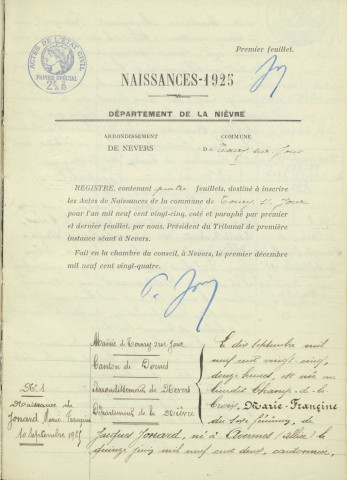 Premier feuillet.
ACTES DE L'ÉTAT CIVIL
PAPIER SPÉCIAL
NAISSANCES-1925
DÉPARTEMENT DE LA NIÈVRE
ARRONDISSEMENT
DE NEVERS
COMMUNE
De Toury sur Jour
REGISTRE, contenant quatre feuillets, destiné à inscrire
les Actes de Naissances de la commune de Toury s/ Jour
pour l'an mil neuf cent vingt-cinq, coté et paraphé par premier
et dernier feuillet, par nous, Président du Tribunal de première
instance séant à Nevers.
Fait en la chambre du conseil, à Nevers, le premier décembre
mil neuf cent vingt-quatre.
N° 1
Naissance de
Jonard Marie Françine
10 Septembre 1925
Mairie de Toury sur Jour
Canton de Dornes
Arrondissement de Nevers
Département de la Nièvre
Le dix septembre mil
neuf cent vingt cinq,
douze heures, est née au
lieudit Champ-de-la
Croix, Marie-Françine
du sexe féminin, de
Jacques Jonard, né à Avermes (Allier) le
quinze juin mil neuf cent deux, cantonnier,